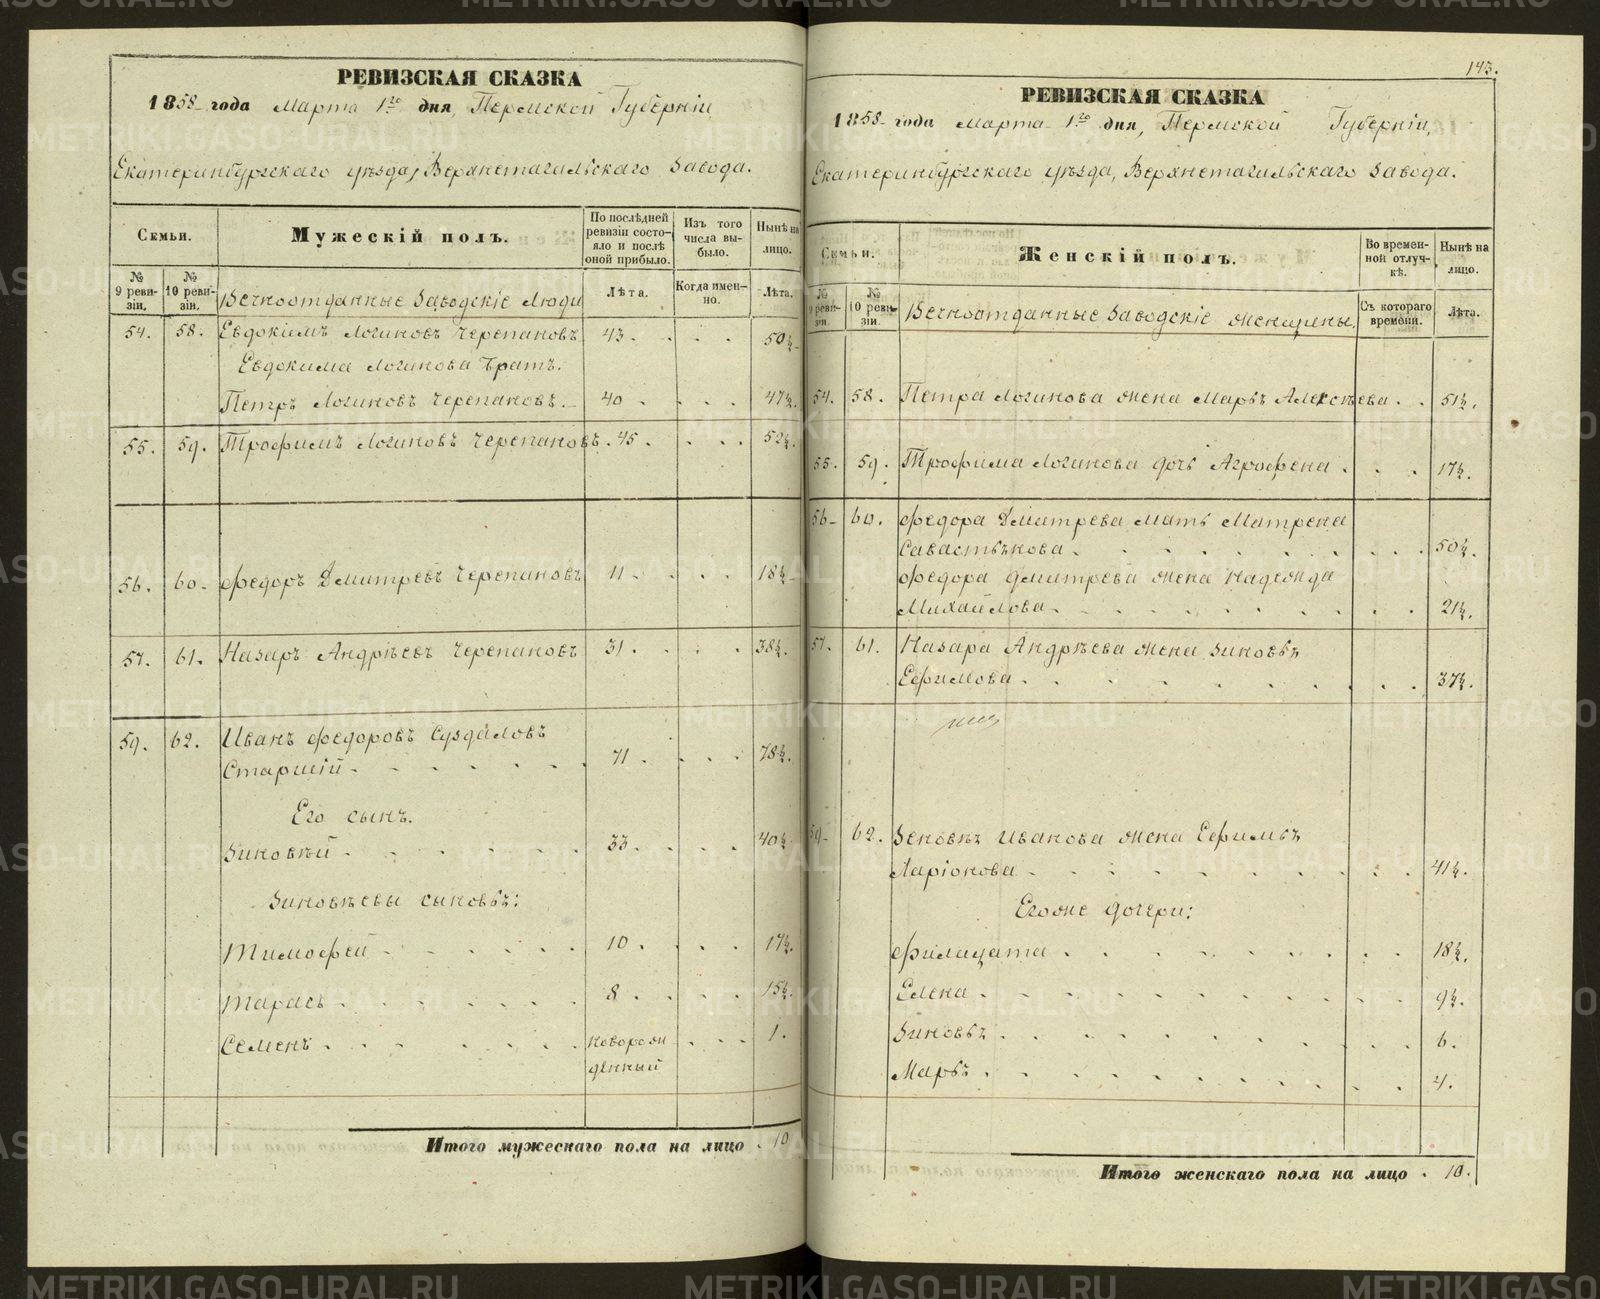 РЕВИЗСКАЯ СКАЗКА
1858 года Марта 1го дня, Пермской Губерніи,
Екатеринбургскаго уѣзда, Верхнетагильскаго Завода.
Семьи.
Мужескій полъ.
По послѣдней ревизіи состояло и послѣ оной прибыло.
Изъ того числа выбыло.
Нынѣ на лицо.
№ 9 ревизіи.
№ 10 ревизіи.
Вечноотданные Заводскіе Люди
Лѣта.
Когда именно.
Лѣта.
54. 58. Евдокимъ Логиновъ Черепановъ 43 . . . 50½
Евдокима Логинова Братъ.
Петръ Логиновъ Черепановъ. 40 . . . 47½.
55. 59. Трофимъ Логиновъ Черепановъ. 45 . . . 52½.
56. 60. Федоръ Дмитревъ Черепановъ 11 . . . 18½
57. 61. Назаръ Андрѣевъ Черепановъ 31 . . . 38½.
59. 62. Иванъ Федоровъ Суздаловъ
Старшій . . . . . 71 . . . 78½.
Его сынъ.
Зиновѣй . . . . . 33 . . . 40½
Зиновѣевы сыновьъ:
Тимофей . . . . . 10 . . . 17½.
Тарасъ . . . . . 8 . . . 15½.
Семенъ . . . . . новорож
денный . . . 1.
Итого мужескаго пола на лицо . 10
143.
РЕВИЗСКАЯ СКАЗКА
1858 года Марта 1го дня, Пермской Губерніи,
Екатеринбургскаго уѣзда, Верхнетагильскаго Завода.
Семьи.
Женскій полъ.
Во временной отлучкѣ.
Нынѣ на лицо.
№ 9 ревизіи.
№ 10 ревизіи.
Вечноотданные Заводскіе женщены.
Съ котораго времени.
Лѣта.
54. 58. Петра Логинова жена Марьъ Алексѣева . . 51½.
55. 59. Трофима Логинова дочь Агрофена . . . 17½.
56 60. Федора Дмитрева мать Матрена
Савастьѣнова . . . . . . . . . 50½.
Федора Дмитрева жена Надежда
Михайлова . . . . . . . . . 21½.
57. 61. Назара Андрѣева жена Зиновьъ
Ефимова . . . . . . . . . 37½.
59 62. Зеновьъ Иванова жена Ефимьъ
Ларіонова . . . . . . . . . 41½.
Егоже дочери:
Филацата . . . . . . . . 18½.
Елена . . . . . . . . . 9½.
Зиновьъ . . . . . . . . 6.
Марьъ . . . . . . . . . 4.
Итого женскаго пола на лицо . 10.
METRIKI.GASO-URAL.RU